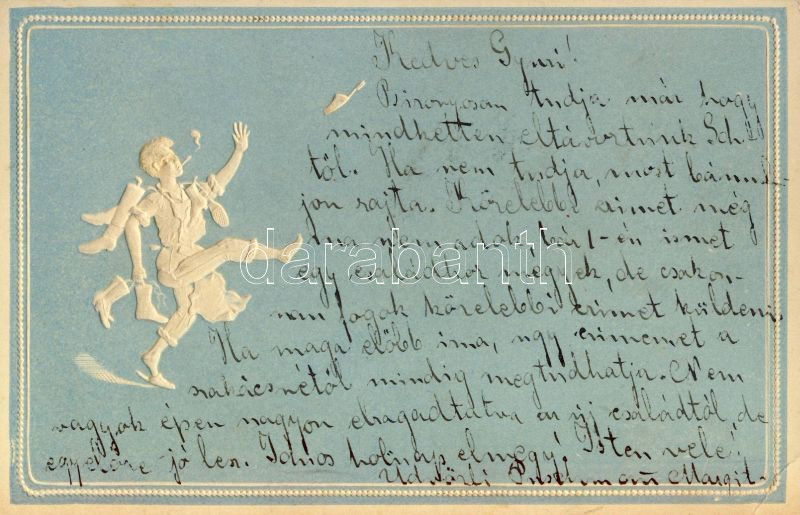 Kedves Gyuri!
Bizonyosan tudja már hogy
mindketten eltávoztunk Sch
től. Ha nem tudja, most bámul-
jon rajta. Közelebbi címet még
ma nem adok, bár 1-én ismet
egy családhoz megyek, de csakon-
nan fogok közelebbi címet küldeni.
Ha maga előbb írna, ugy címemet a
szakácsnétól mindig megtudhatja. Nem
vagyok épen nagyon elragadtatva az új családtól, de
egyelőre jó lesz. János holnap elmegy. Isten vele!
Üdvözli Margit.
darabanth